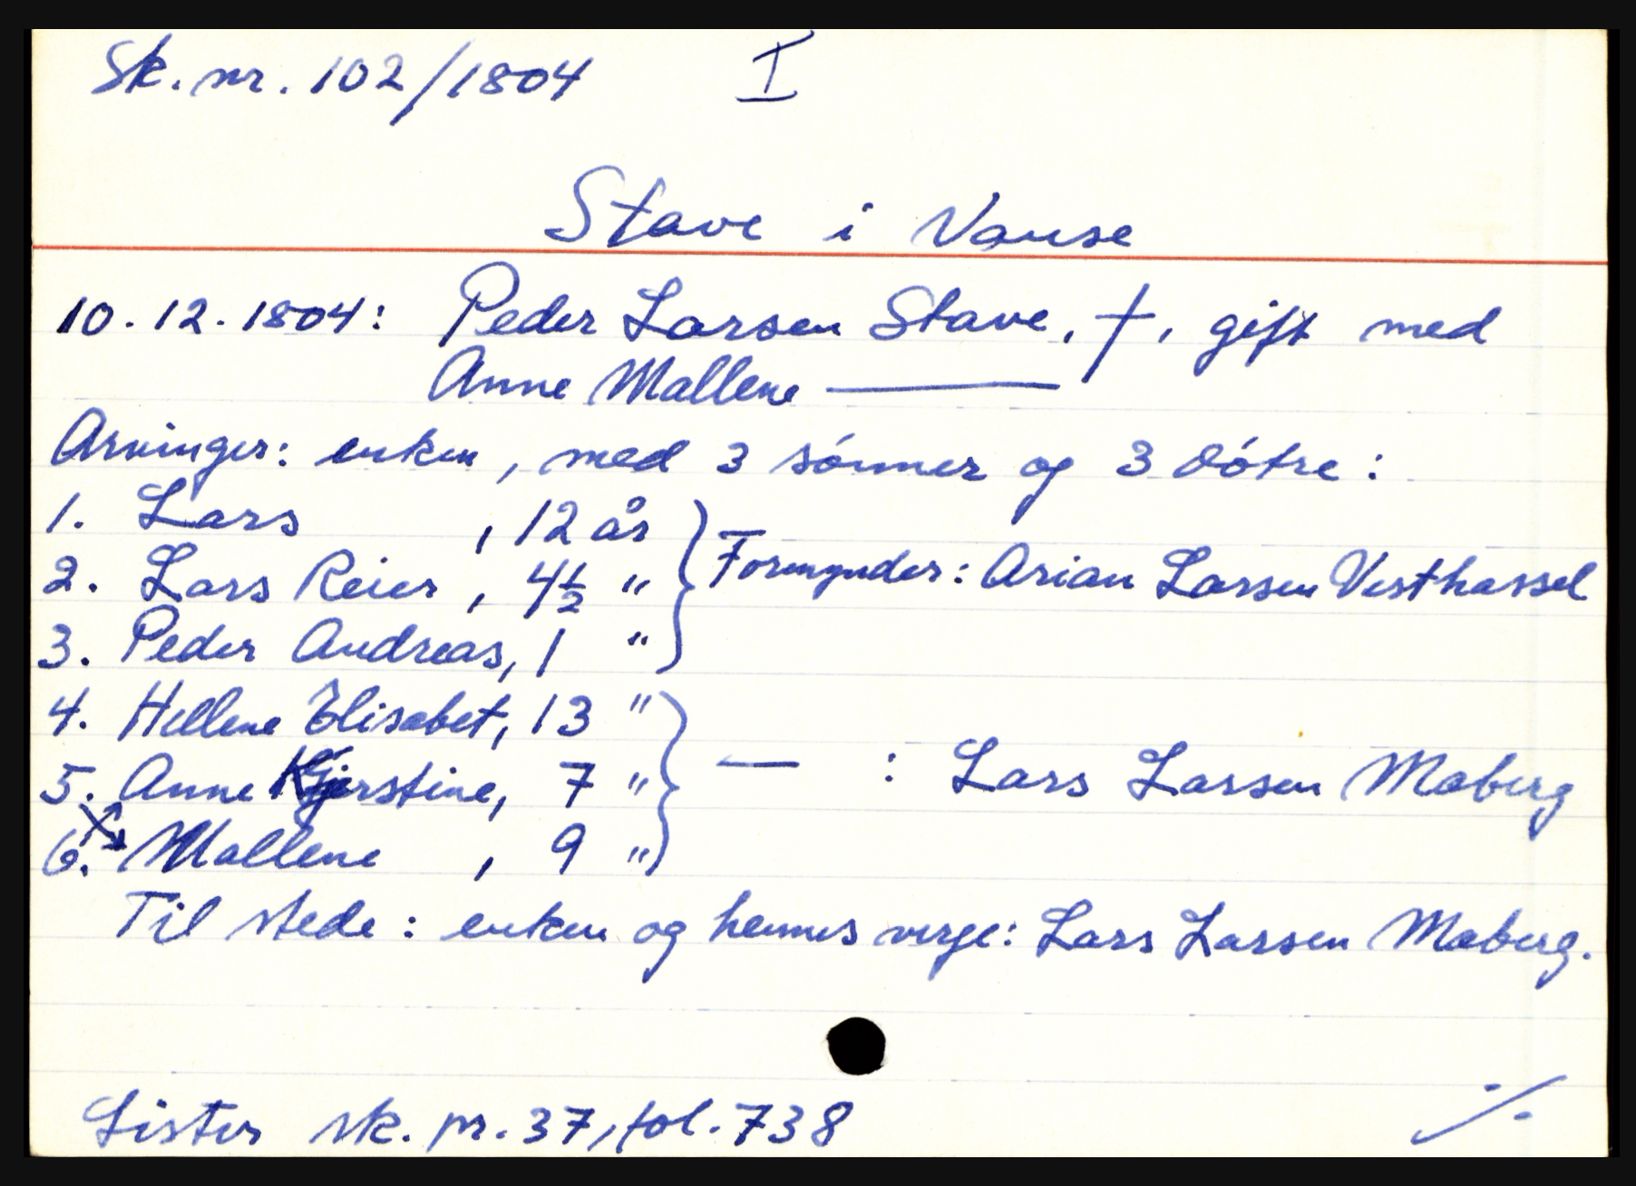 Sk. nr. 102/1804 I
Stave i Vanse
10.12.1804: Peder Larsen Stave, †, gift med
Anne Mallene ———
Arvinger: enken, med 3 sónner og 3 dótre:
1. Lars , 12 år
2. Lars Reier , 4½ " } Formynder: Arian Larsen Vesthassel
3. Peder Andreas, 1 "
4. Hellene Elisabet, 13 "
5. Anne Kjerstine, 7 " } — : Lars Larsen Maberg
6. Mallene , 9 "
Til stede: enken og hennes verge: Lars Larsen Maberg.
Lister sk. pr. 37, fol. 738 ·/.